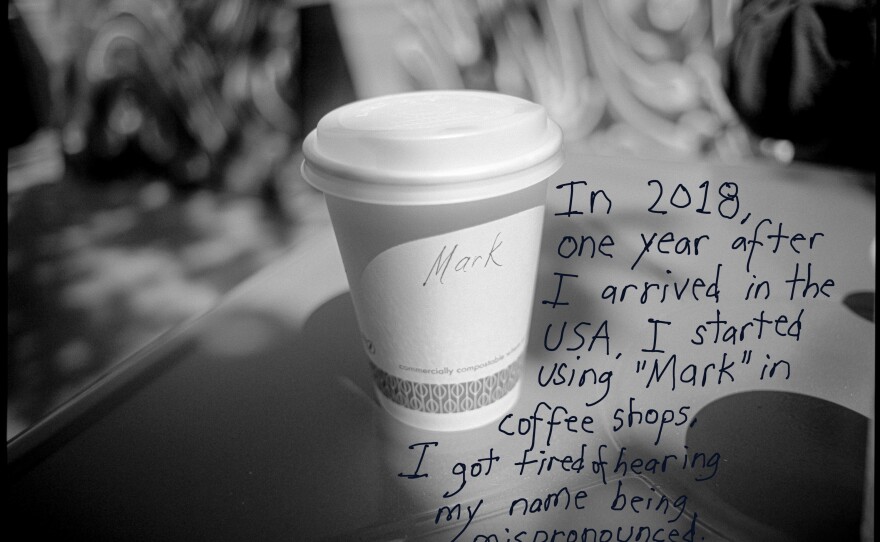 Mark
commercially compostable
In 2018,
one year after
I arrived in the
USA, I started
using "Mark" in
coffee shops.
I got tired of hearing
my name being
mispronounced.